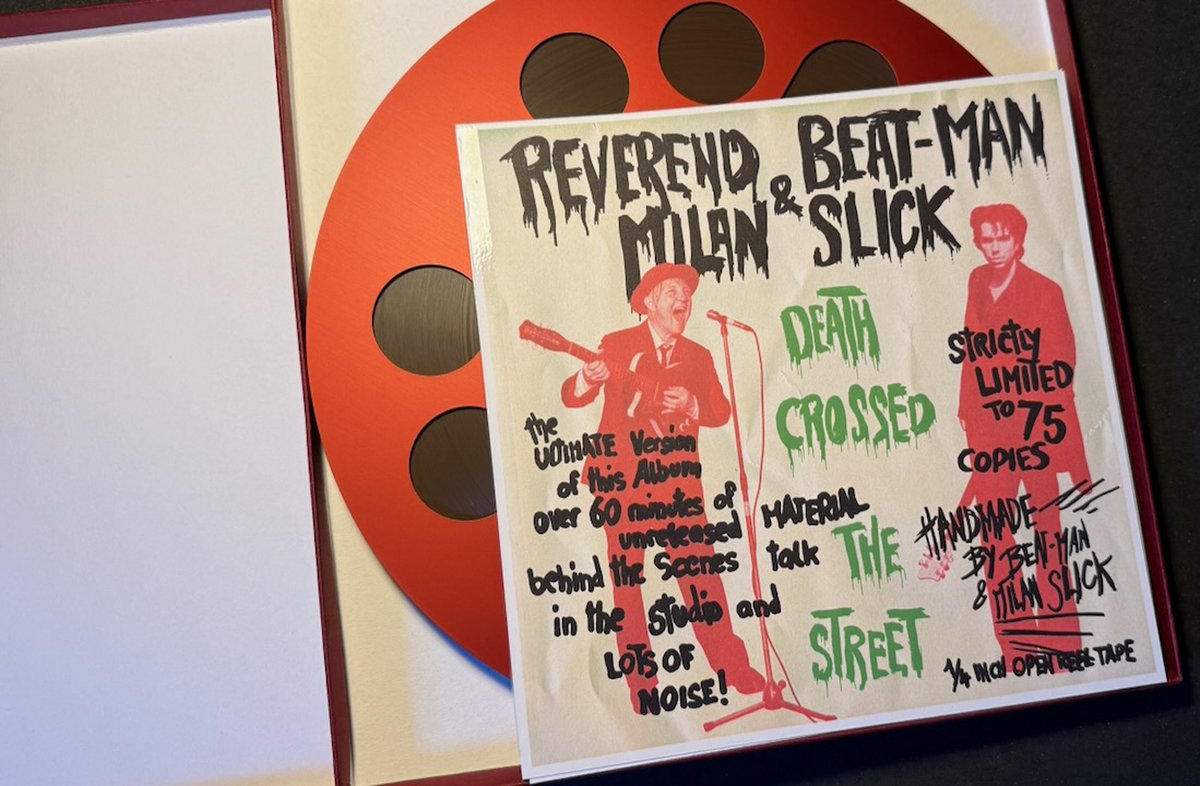 REVEREND BEAT-MAN
& MILAN SLICK
DEATH
CROSSED
THE
STREET
the
ULTIMATE Version
of this Album
over 60 minutes of
unreleased MATERIAL
behind the Scenes talk
in the studio and
LOTS OF
NOISE!
STRICTLY
LIMITED
TO 75
COPIES
HANDMADE
BY BEAT-MAN
& MILAN SLICK
1/4 INCH OPEN REEL TAPE